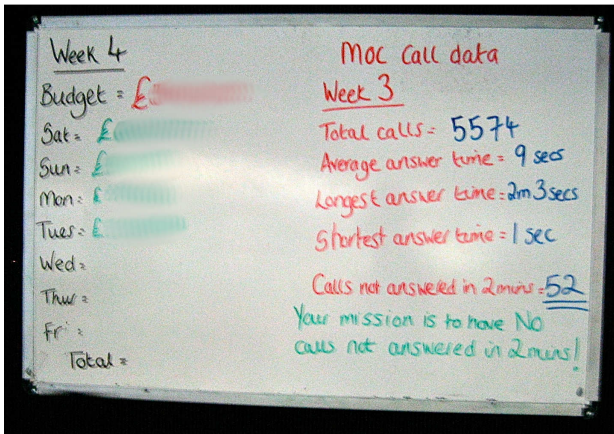 Week 4
Budget = £
Sat = £
Sun = £
Mon = £
Tues = £
Wed =
Thur =
Fri =
Total =
Moc Call data
Week 3
Total calls = 5574
Average answer time = 9 secs
Longest answer time = 2m 3secs
Shortest answer time = 1 sec
Calls not answered in 2mins = 52
Your mission is to have No
calls not answered in 2mins!